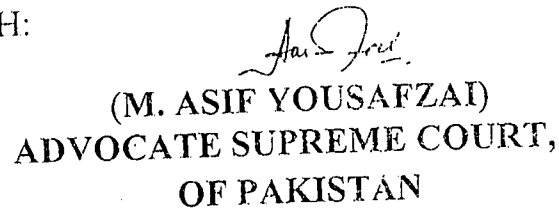 H:
(M. ASIF YOUSAFZAI)
ADVOCATE SUPREME COURT,
OF PAKISTAN